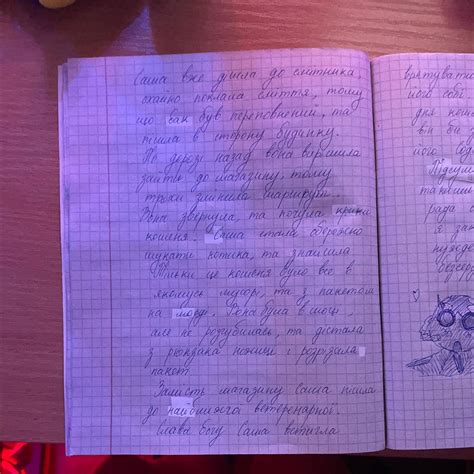 Саша вже дійшла до смітника,
охайно поклала сміття, тому
що бак був переповнений, та
пішла в сторону будинку.
По дорозі назад вона вирішила
зайти до магазину, тому
трохи змінила маршрут.
Вона звернула, та почула крики
кошеня. Саша стала обережно
шукати котика, та знайшла
Тільки це кошеня було все в
якомусь муторі, та з пакетом
на морді. Вона була в шоці,
але не розгубилась, та дістала
з рюкзака ножиці і розрізала
пакет.
Замість магазину Саша пішла
до найближчої ветеренарної.
Слава богу Саша встигла
врятувати
його собі
для коше
він би
його
Підсум
рада
я